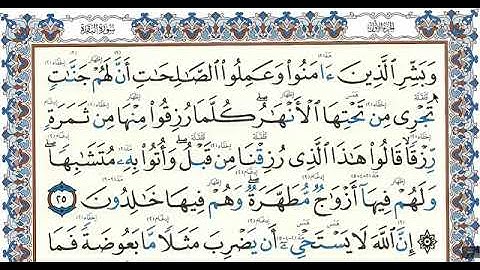 الجزء الأول سورة البقرة
وَبَشِّرِ الَّذِينَ ءَامَنُوا وَعَمِلُوا الصَّالِحَاتِ أَنَّ لَهُمْ جَنَّاتٍ
تَجْرِي مِن تَحْتِهَا الْأَنْهَارُ كُلَّمَا رُزِقُوا مِنْهَا مِن ثَمَرَةٍ
رِّزْقًا قَالُوا هَذَا الَّذِي رُزِقْنَا مِن قَبْلُ وَأُتُوا بِهِ مُتَشَابِهًا
وَلَهُمْ فِيهَا أَزْوَاجٌ مُّطَهَّرَةٌ وَهُمْ فِيهَا خَالِدُونَ ٢٥
إِنَّ اللَّهَ لَا يَسْتَحْيِي أَن يَضْرِبَ مَثَلًا مَّا بَعُوضَةً فَمَا